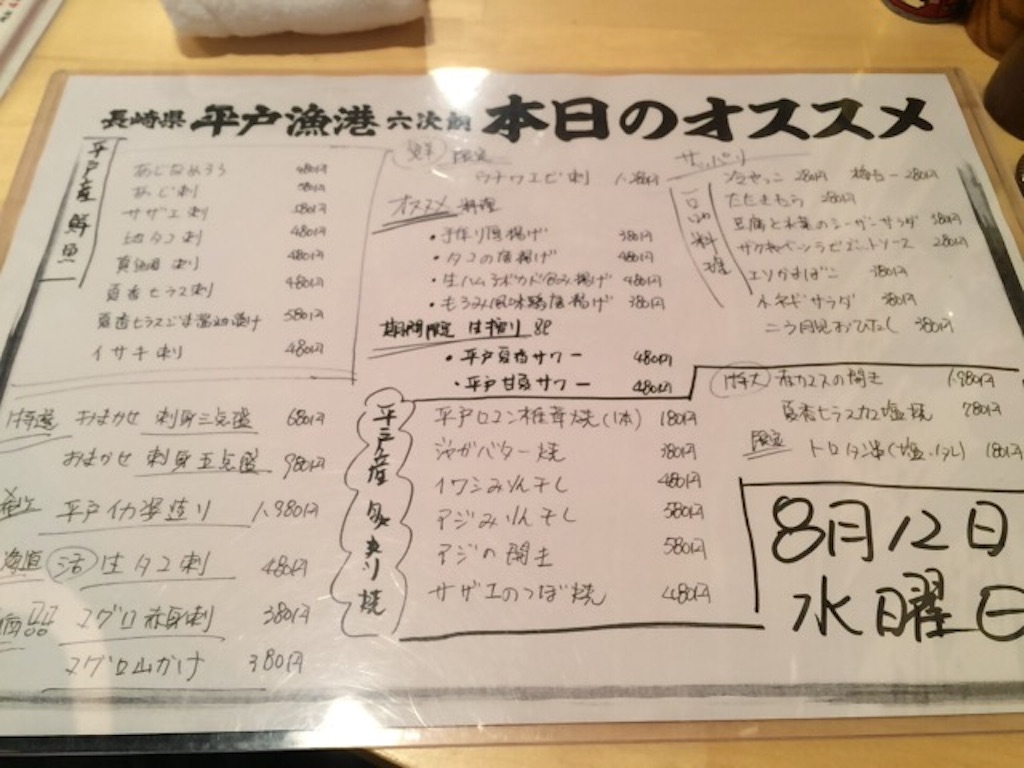 長崎県 平戸漁港 六次朗 本日のオススメ
平戸産 鮮魚
あじなめろう 480円
あじ刺
サザエ刺 580円
地タコ刺 480円
真鯛 刺 480円
夏香ヒラス刺 480円
夏香ヒラスごま醤油漬け 580円
イサキ刺 480円
鮮 限定
ウチワエビ刺 1.280円
オススメ料理
・手作り厚揚げ 380円
・タコの唐揚げ 480円
・生ハムアボカド包み揚げ 480円
・もろみ風味鶏唐揚げ 380円
期間限定 生搾り
・平戸夏香サワー 480円
・平戸甘夏サワー 480円
サッパリ
一品料理
冷やっこ 280円 280円
たたききゅうり 280円
豆腐と水菜のシーザーサラダ
280円
エソかまぼこ 380円
380円
380円
特選 おまかせ 刺身三点盛 680円
おまかせ 刺身五点盛 980円
平戸イカ姿造り 1.980円
活 生タコ刺 480円
マグロ赤身刺 380円
マグロ山かけ 380円
平戸産 炙り焼
平戸ロマン椎茸焼(1本) 180円
ジャガバター焼 380円
イワシみりん干し 480円
アジみりん干し 580円
アジの開き 580円
サザエのつぼ焼 480円
特大 赤カマスの開き 1.980円
夏香ヒラスカマ塩焼 780円
限定 トロタン串(塩・タレ) 180円
8月12日
水曜日